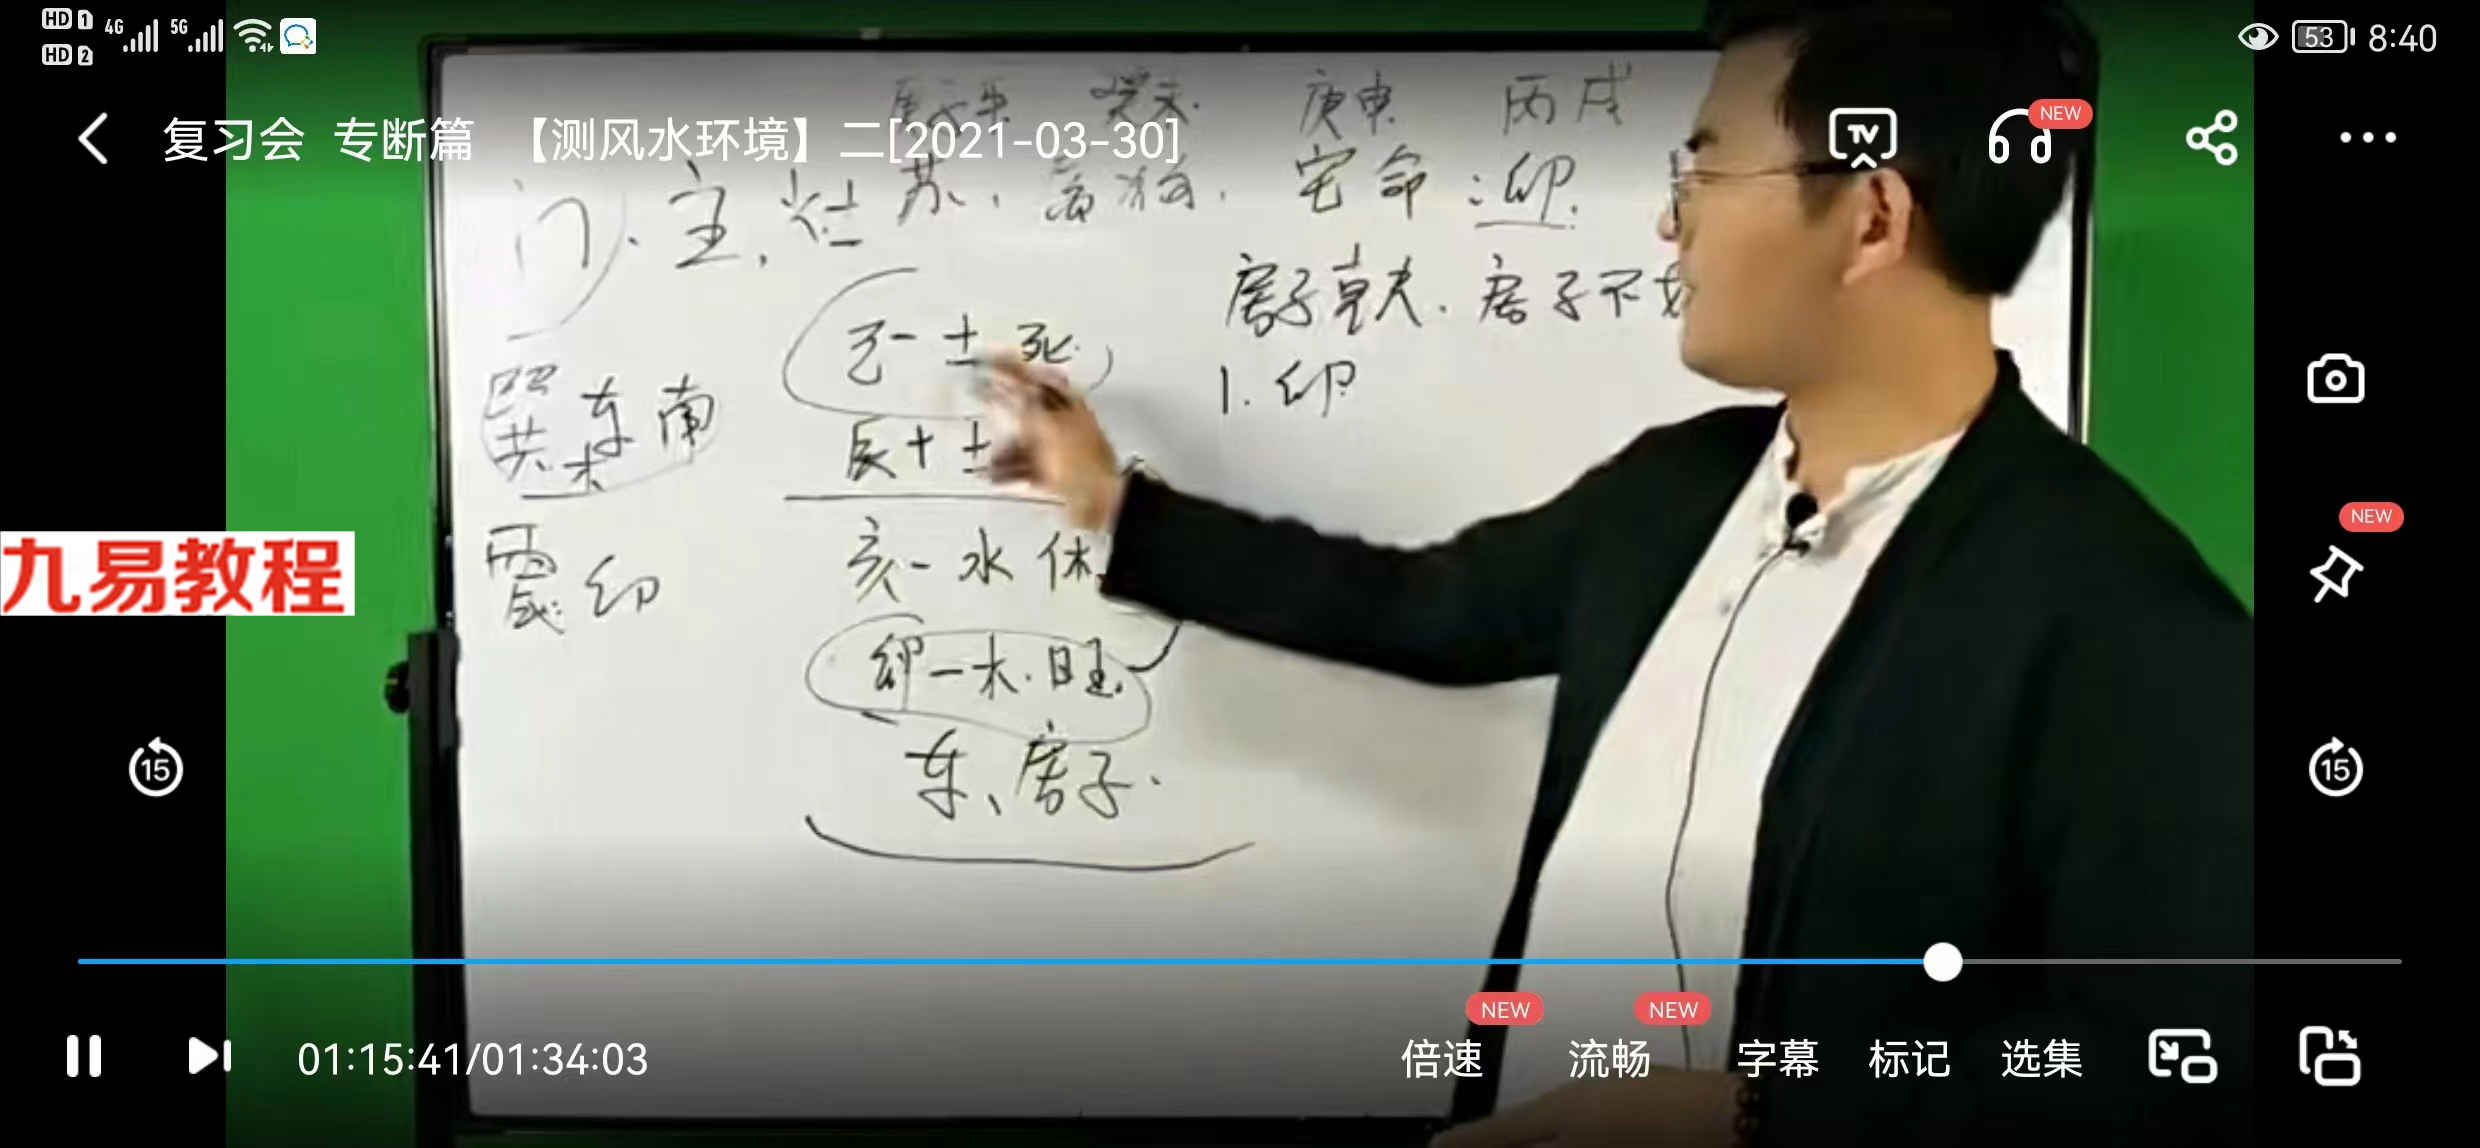 HD 1 4G 5G
HD 2
53 8:40
复习会 专断篇 【测风水环境】二[2021-03-30]
TV
NEW
庚申 丙戌
门、主、灶
宅命:卯.
房子
房子不
1. 卯
巽 东南
木
土 死
辰十土
震: 卯
亥-水 休
卯-木.旺.
东、房子.
九易教程
NEW
15
15
NEW
NEW
01:15:41/01:34:03
倍速
流畅
字幕
标记
选集